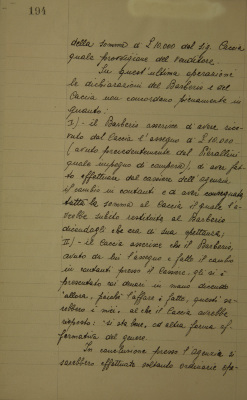 194
della somma di £ 10.000 dal Sig. Caccia
quale provvigione del venditore.
In quest'ultima operazione
le dichiarazioni del Barberis e del
Caccia non concordano pienamente in
quanto:
I) - il Barberis asserisce di avere rice-
vuto dal Caccia l'assegno di £ 10.000
(avuto precedentemente dal
quale impegno di compera), di aver fat-
to effettuare dal cassiere dell'agenzia
il cambio in contanti e di aver consegnata
tutta la somma al Caccia il quale l'a-
vrebbe subito restituita al Barberis
dicendogli che era di sua spettanza;
II) - il Caccia asserisce che il Barberis,
avuto da lui l'assegno e fatto il cambio
in contanti presso il Cassiere, gli si è
presentato coi denari in mano dicendo
"allora, perché l'affare è fatto, questi sa-
rebbero i miei", al che il Caccia avrebbe
risposto: "si sta bene, od altra forma af-
fermativa del genere.
In conclusione presso l'agenzia si
sarebbero effettuate soltanto ordinarie ope-